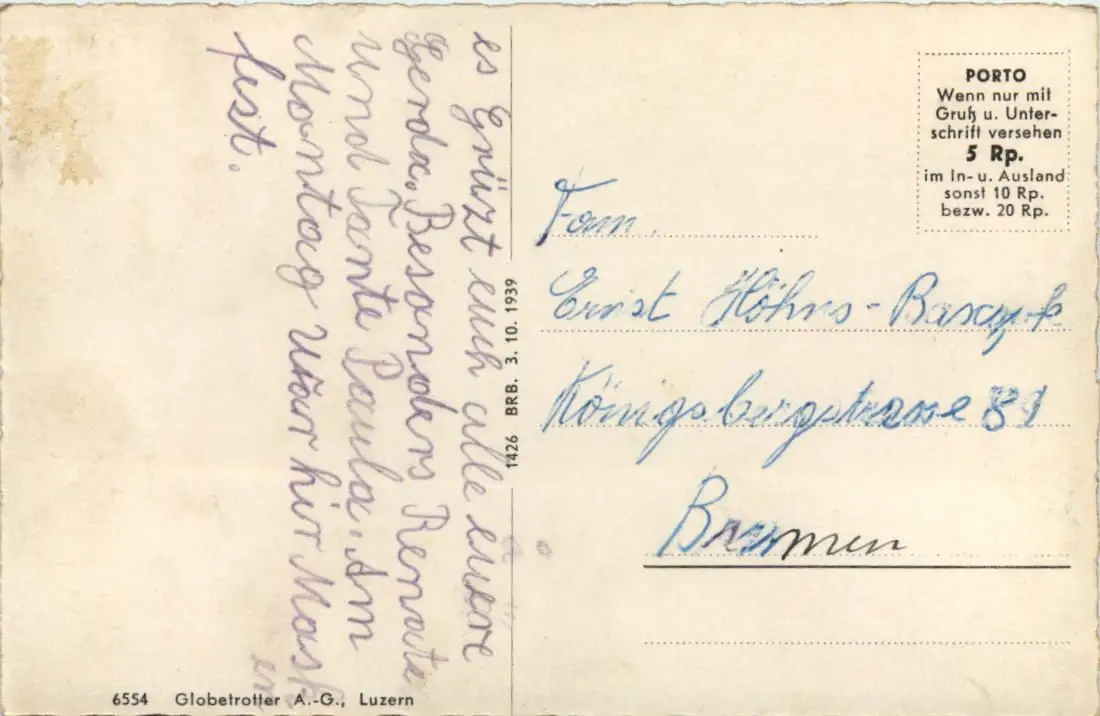 es Grüzt euch alle euere
Gerda. Besonders Renate
und Tante Paula. Am
Montag war hir Mask
en
fest.
1426 BRB. 3. 10. 1939
6554 Globetrotter A.-G., Luzern
PORTO
Wenn nur mit
Gruß u. Unter-
schrift versehen
5 Rp.
im In- u. Ausland
sonst 10 Rp.
bezw. 20 Rp.
Fam.
Ernst Höhns-
Königsbergstrasse 89
Bremen